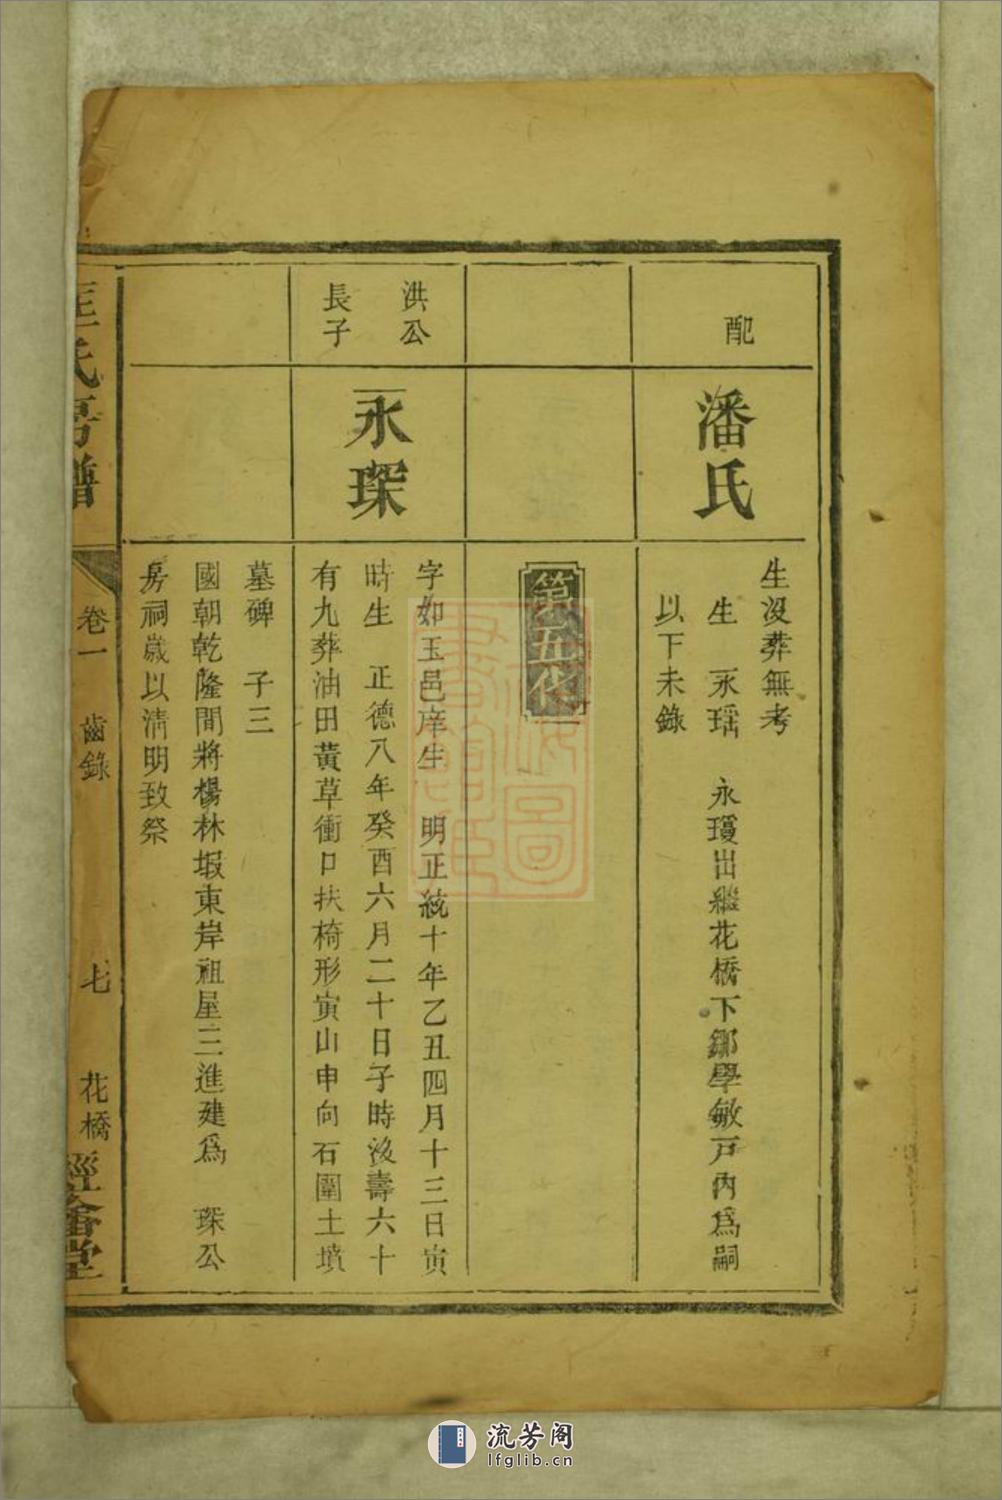 配
潘氏
生沒葬無考
生 永瑤 永瓊出繼花橋下鄒學敏戸內爲嗣
以下未錄
第五代
洪公
長子
永琛
字如玉邑庠生 明正統十年乙丑四月十三日寅
時生 正德八年癸酉六月二十日子時沒壽六十
有九葬油田黃草衝口扶椅形寅山申向石圍土墳
墓碑 子三
國朝乾隆間將楊林塅東岸祖屋三進建爲 琛公
房祠歲以清明致祭
氏房譜
卷一 齒錄
七
花橋
經畬堂
流芳阁
lfglib.cn